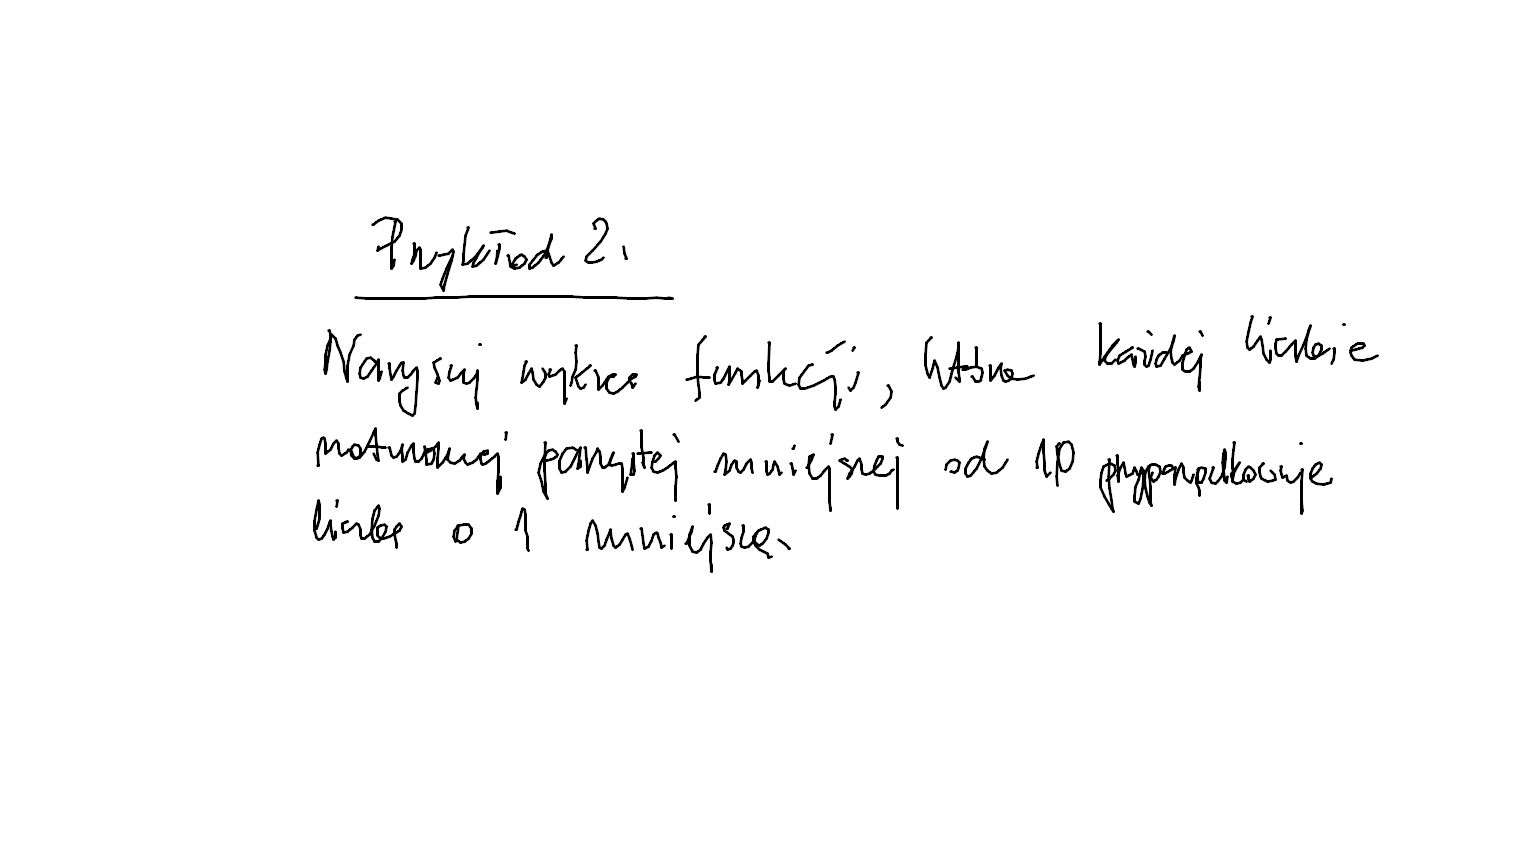 Przykład 2.
Narysuj wykres funkcji, która każdej liczbie
naturalnej parzystej mniejszej od 10 przyporządkowuje
liczbę o 1 mniejszą.